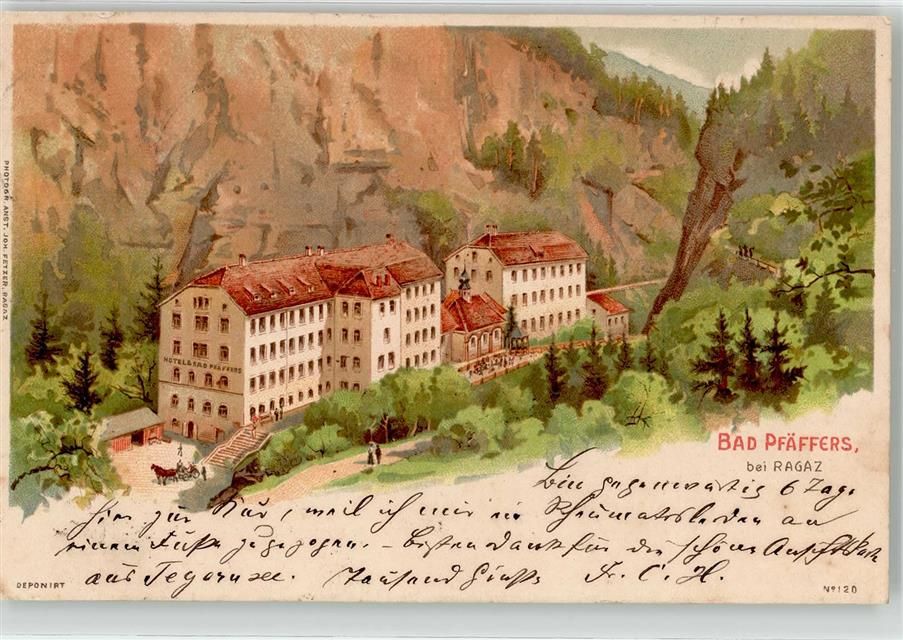 PHOTOGR. ANST. JOH. FETZER, RAGAZ.
HOTEL & BAD PFÄFFERS
BAD PFÄFFERS,
bei RAGAZ
Bin gegenwärtig 6 Tage
hier zur Kur, weil ich mir ein Rheumatsleiden an
einem Fuße zugezogen. – Besten Dank für die schöne Ansichtskarte
aus Tegernsee. Tausend Grüße Fr. C. H.
DEPONIRT
No 120